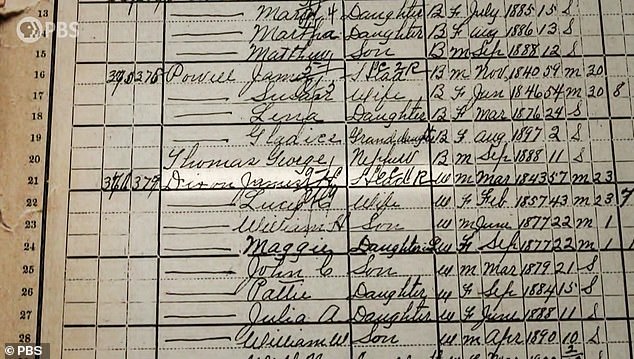 13 Mary Daughter B F July 1885 15 S
PBS
14 Martha Daughter B F Aug 1886 13 S
Matthew Son B M Sep 1888 12 S
16 378 Powell James Head B M Nov 1840 59 M 20
17 Susan Wife B F Jan 1846 54 M 20 8
18 Lena Daughter B F Mar 1876 24 S
19 Gladice Granddaughter B F Aug 1897 2 S
20 Thomas George Nephew B M Sep 1888 11 S
21 379 Dixon James Head W M Mar 1843 57 M 23
22 Lucy Wife W F Feb 1857 43 M 23 7
23 William H Son W M June 1877 22 M 1
24 Maggie Daughter L W F Sep 1877 22 M 1 1
25 John C Son W M Mar 1879 21 S
26 Pattie Daughter W F Sep 1884 15 S
27 Julia A Daughter W F June 1888 11 S
28 William W Son W M Apr 1890 10 S
© PBS